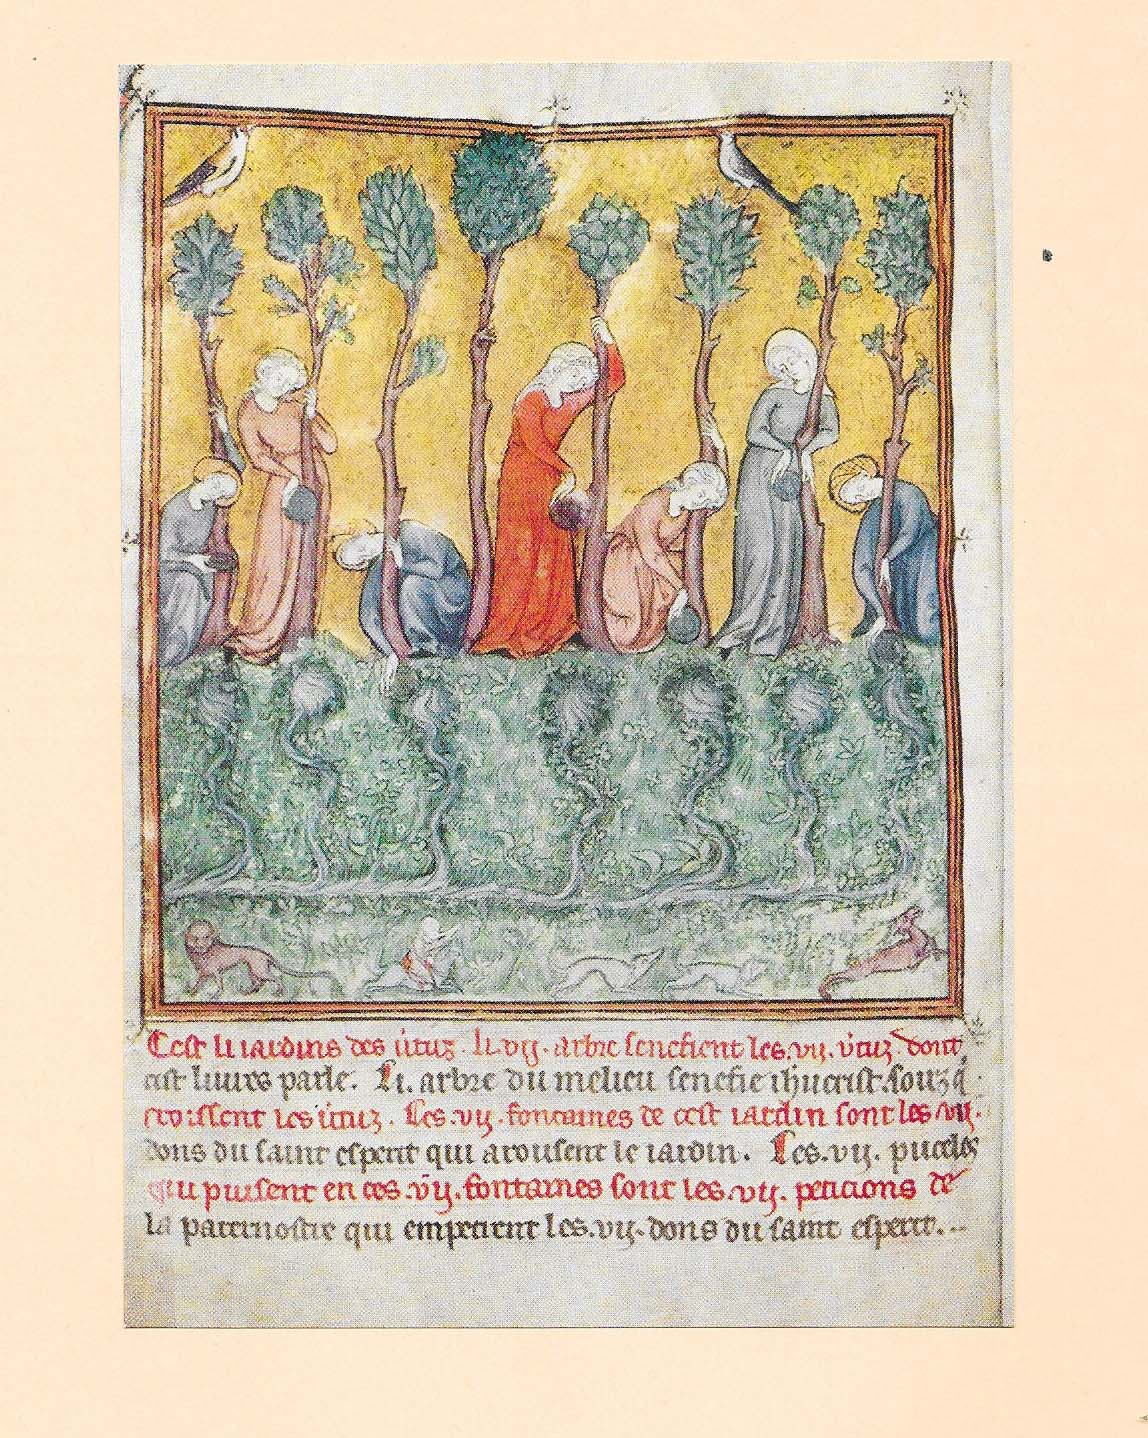 Cest li iardins des v'tuz. li. vij. arbre senefient les. vij. v'tuz dont
cist liures parle. Li. arbre du melieu senefie ihucrist. souz q̄
croissent les v'tuz. Les. vij. fontaines de cest iardin sont les vij.
dons du saint esperit qui arousent le iardin. Les. vij. puceles
qui puisent en ces. vij. fontaines sont les. vij. peticions de
la paternostre qui empetrent les. vij. dons du saint esperit...